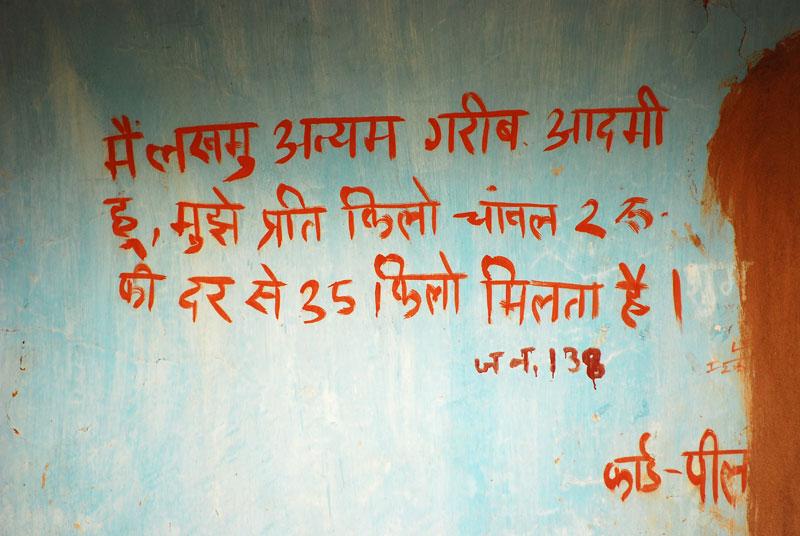 मैं लखमु अत्यम गरीब आदमी
हू, मुझे प्रति किलो चांवल 2 रु.
की दर से 35 किलो मिलता है।
ज न. 138
कार्ड-पील